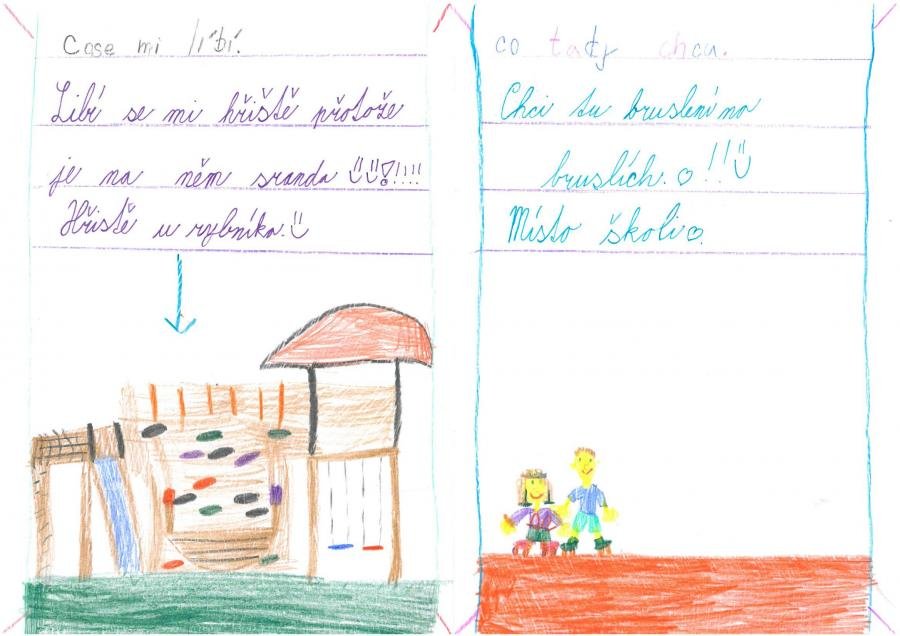 Cose mi líbí.
Libí se mi hřiště přotože
je na něm sranda !!!!!
Hřistě u rybníka.
co tady chcu.
Chci tu bruslení na
bruslích. !!
Místo školi